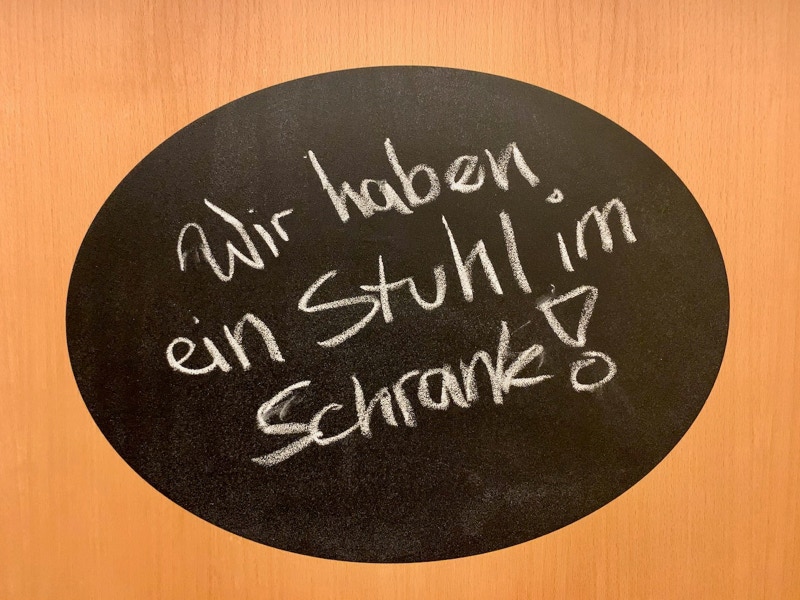 Wir haben
ein Stuhl im
Schrank!